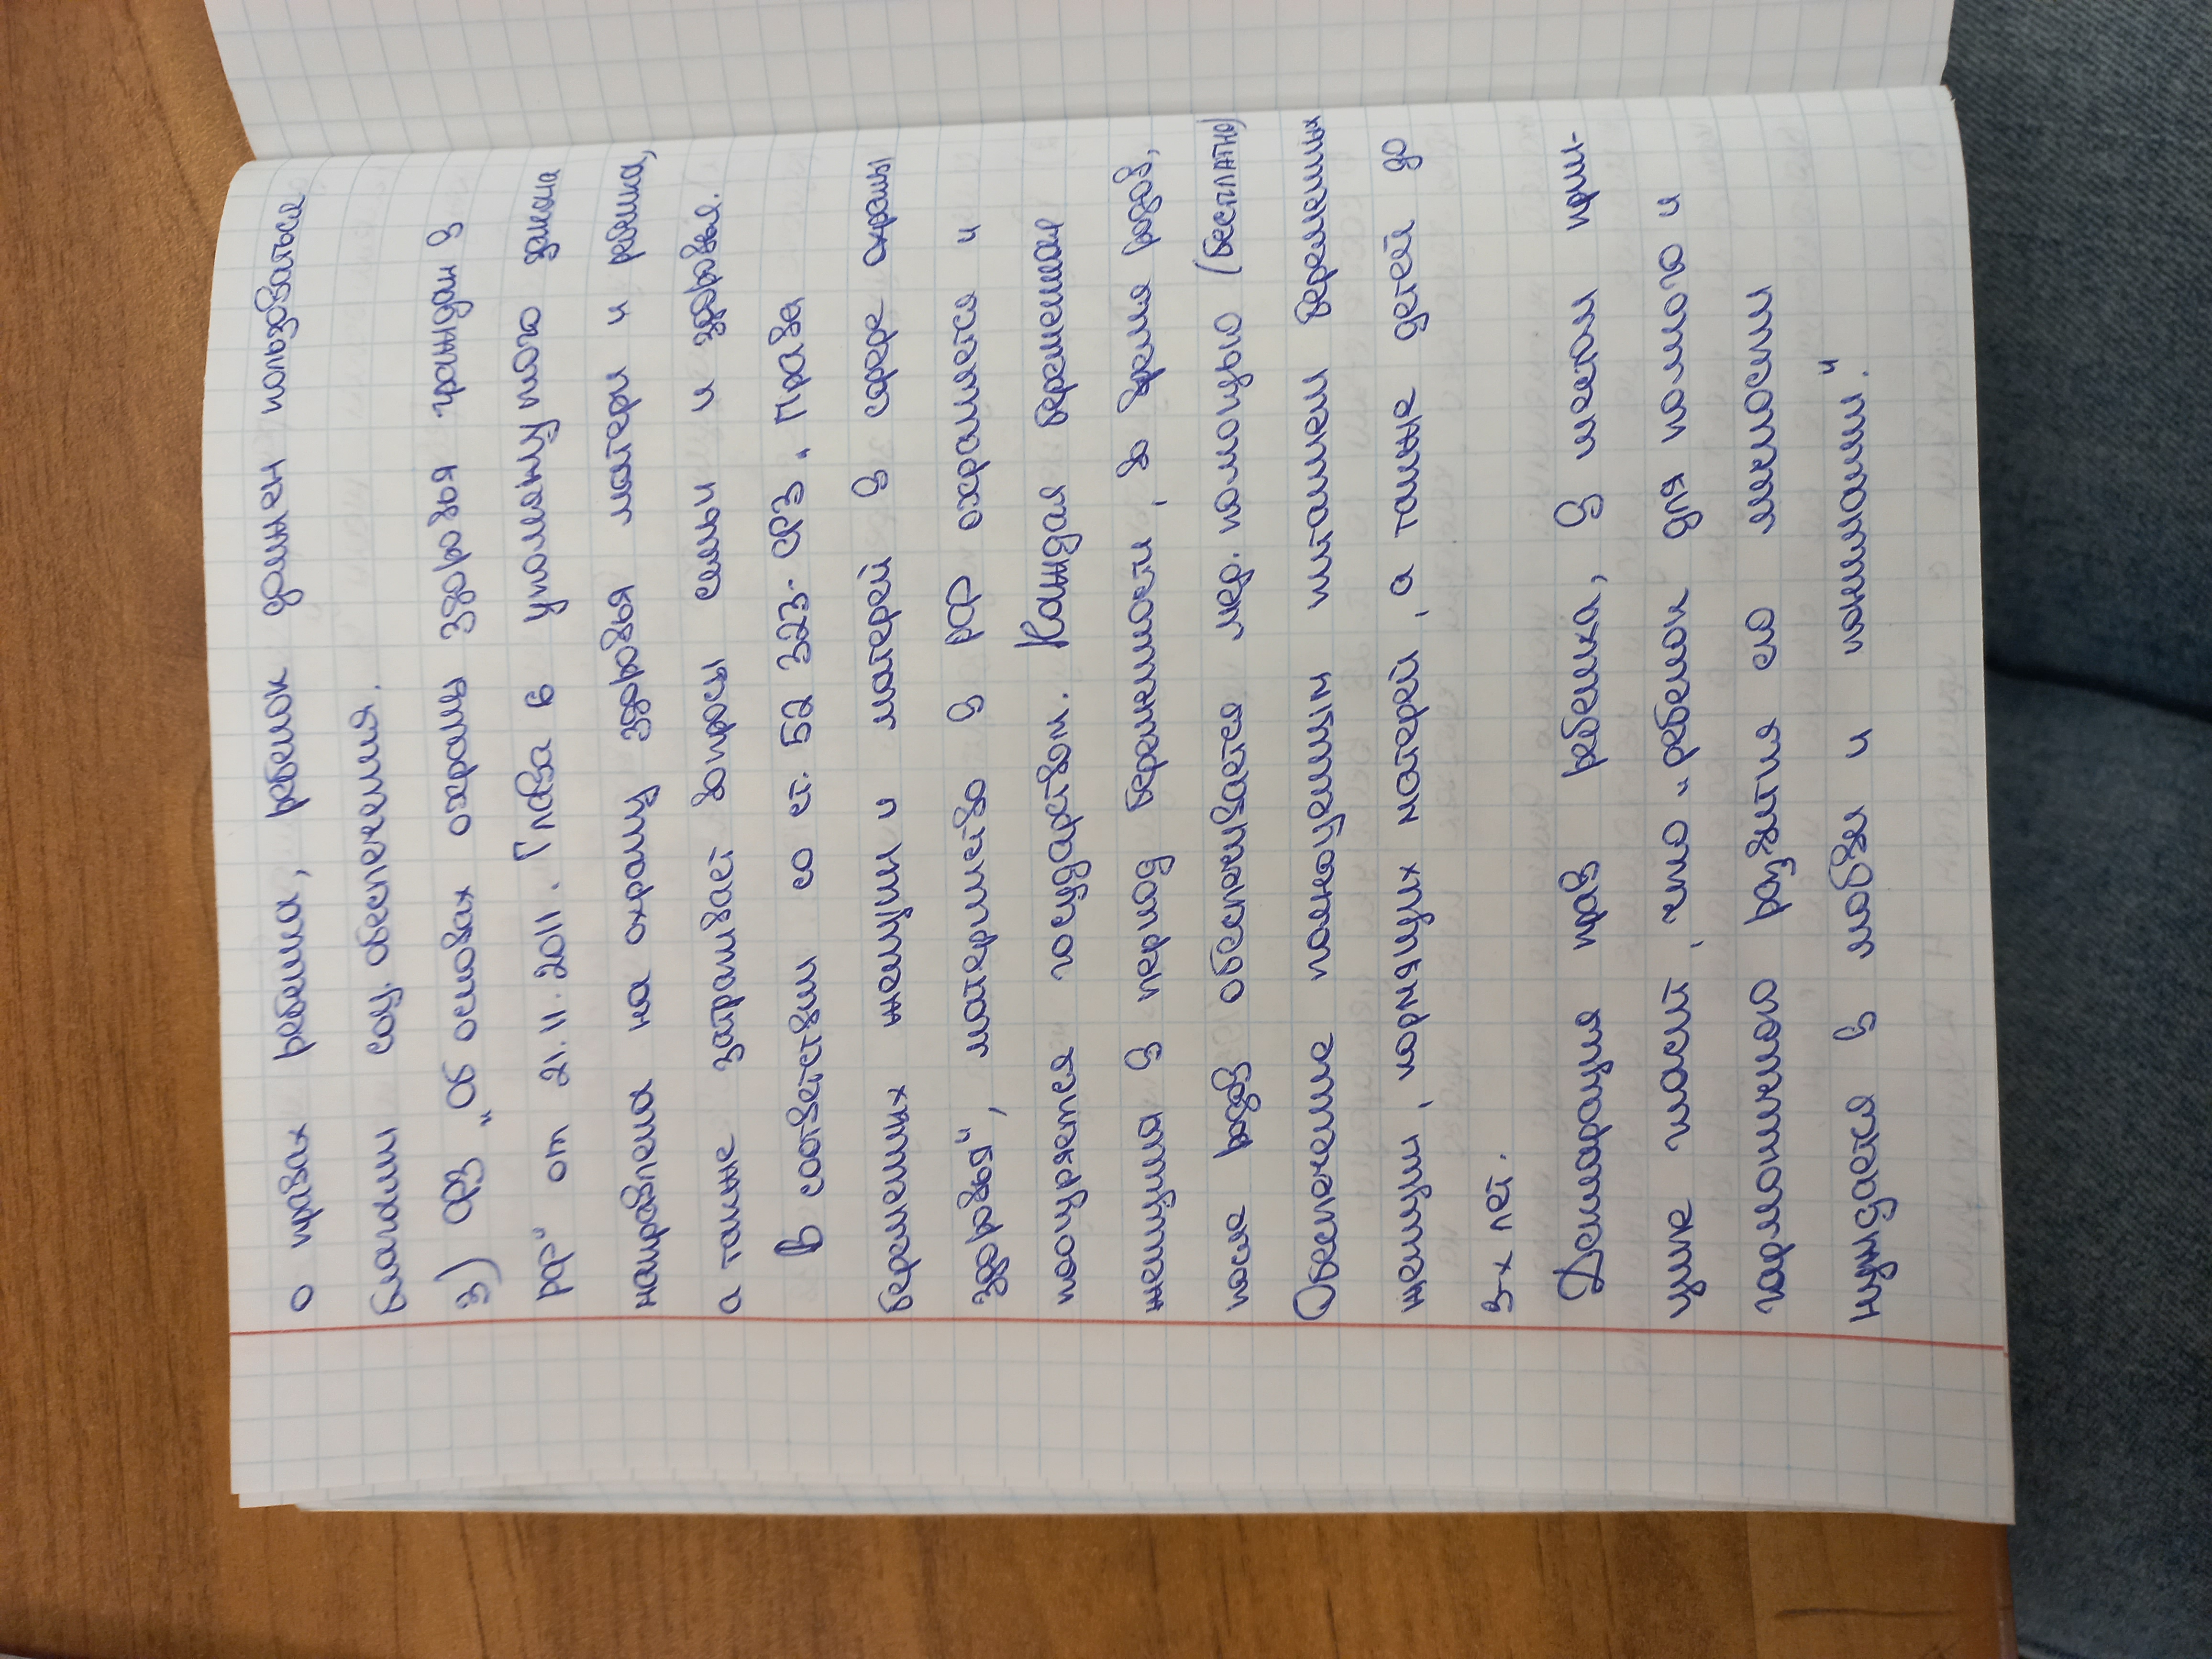 о правах ребенка, ребенок должен пользоваться
благами соц. обеспечения.
3) ФЗ „Об основах охраны здоровья граждан в
РФ" от 21.11.2011. Глава 6 упомянутого закона
направлена на охрану здоровья матери и ребенка,
а также затрагивает вопросы семьи и здоровья.
В соответствии со ст. 52 323-ФЗ „Права
беременных женщин и матерей в сфере охраны
здоровья", материнство в РФ охраняется и
поощряется государством. Каждая беременная
женщина в период беременности, во время родов,
после родов обеспечивается мед. помощью (БЕСПЛАТНО)
Обеспечение полноценным питанием беременных
женщин, кормящих матерей, а также детей до
3-х лет.
Декларация прав ребенка, в чистом прин-
ципе гласит, что „ребенок для полного и
гармоничного развития его личности
нуждается в любви и понимании."